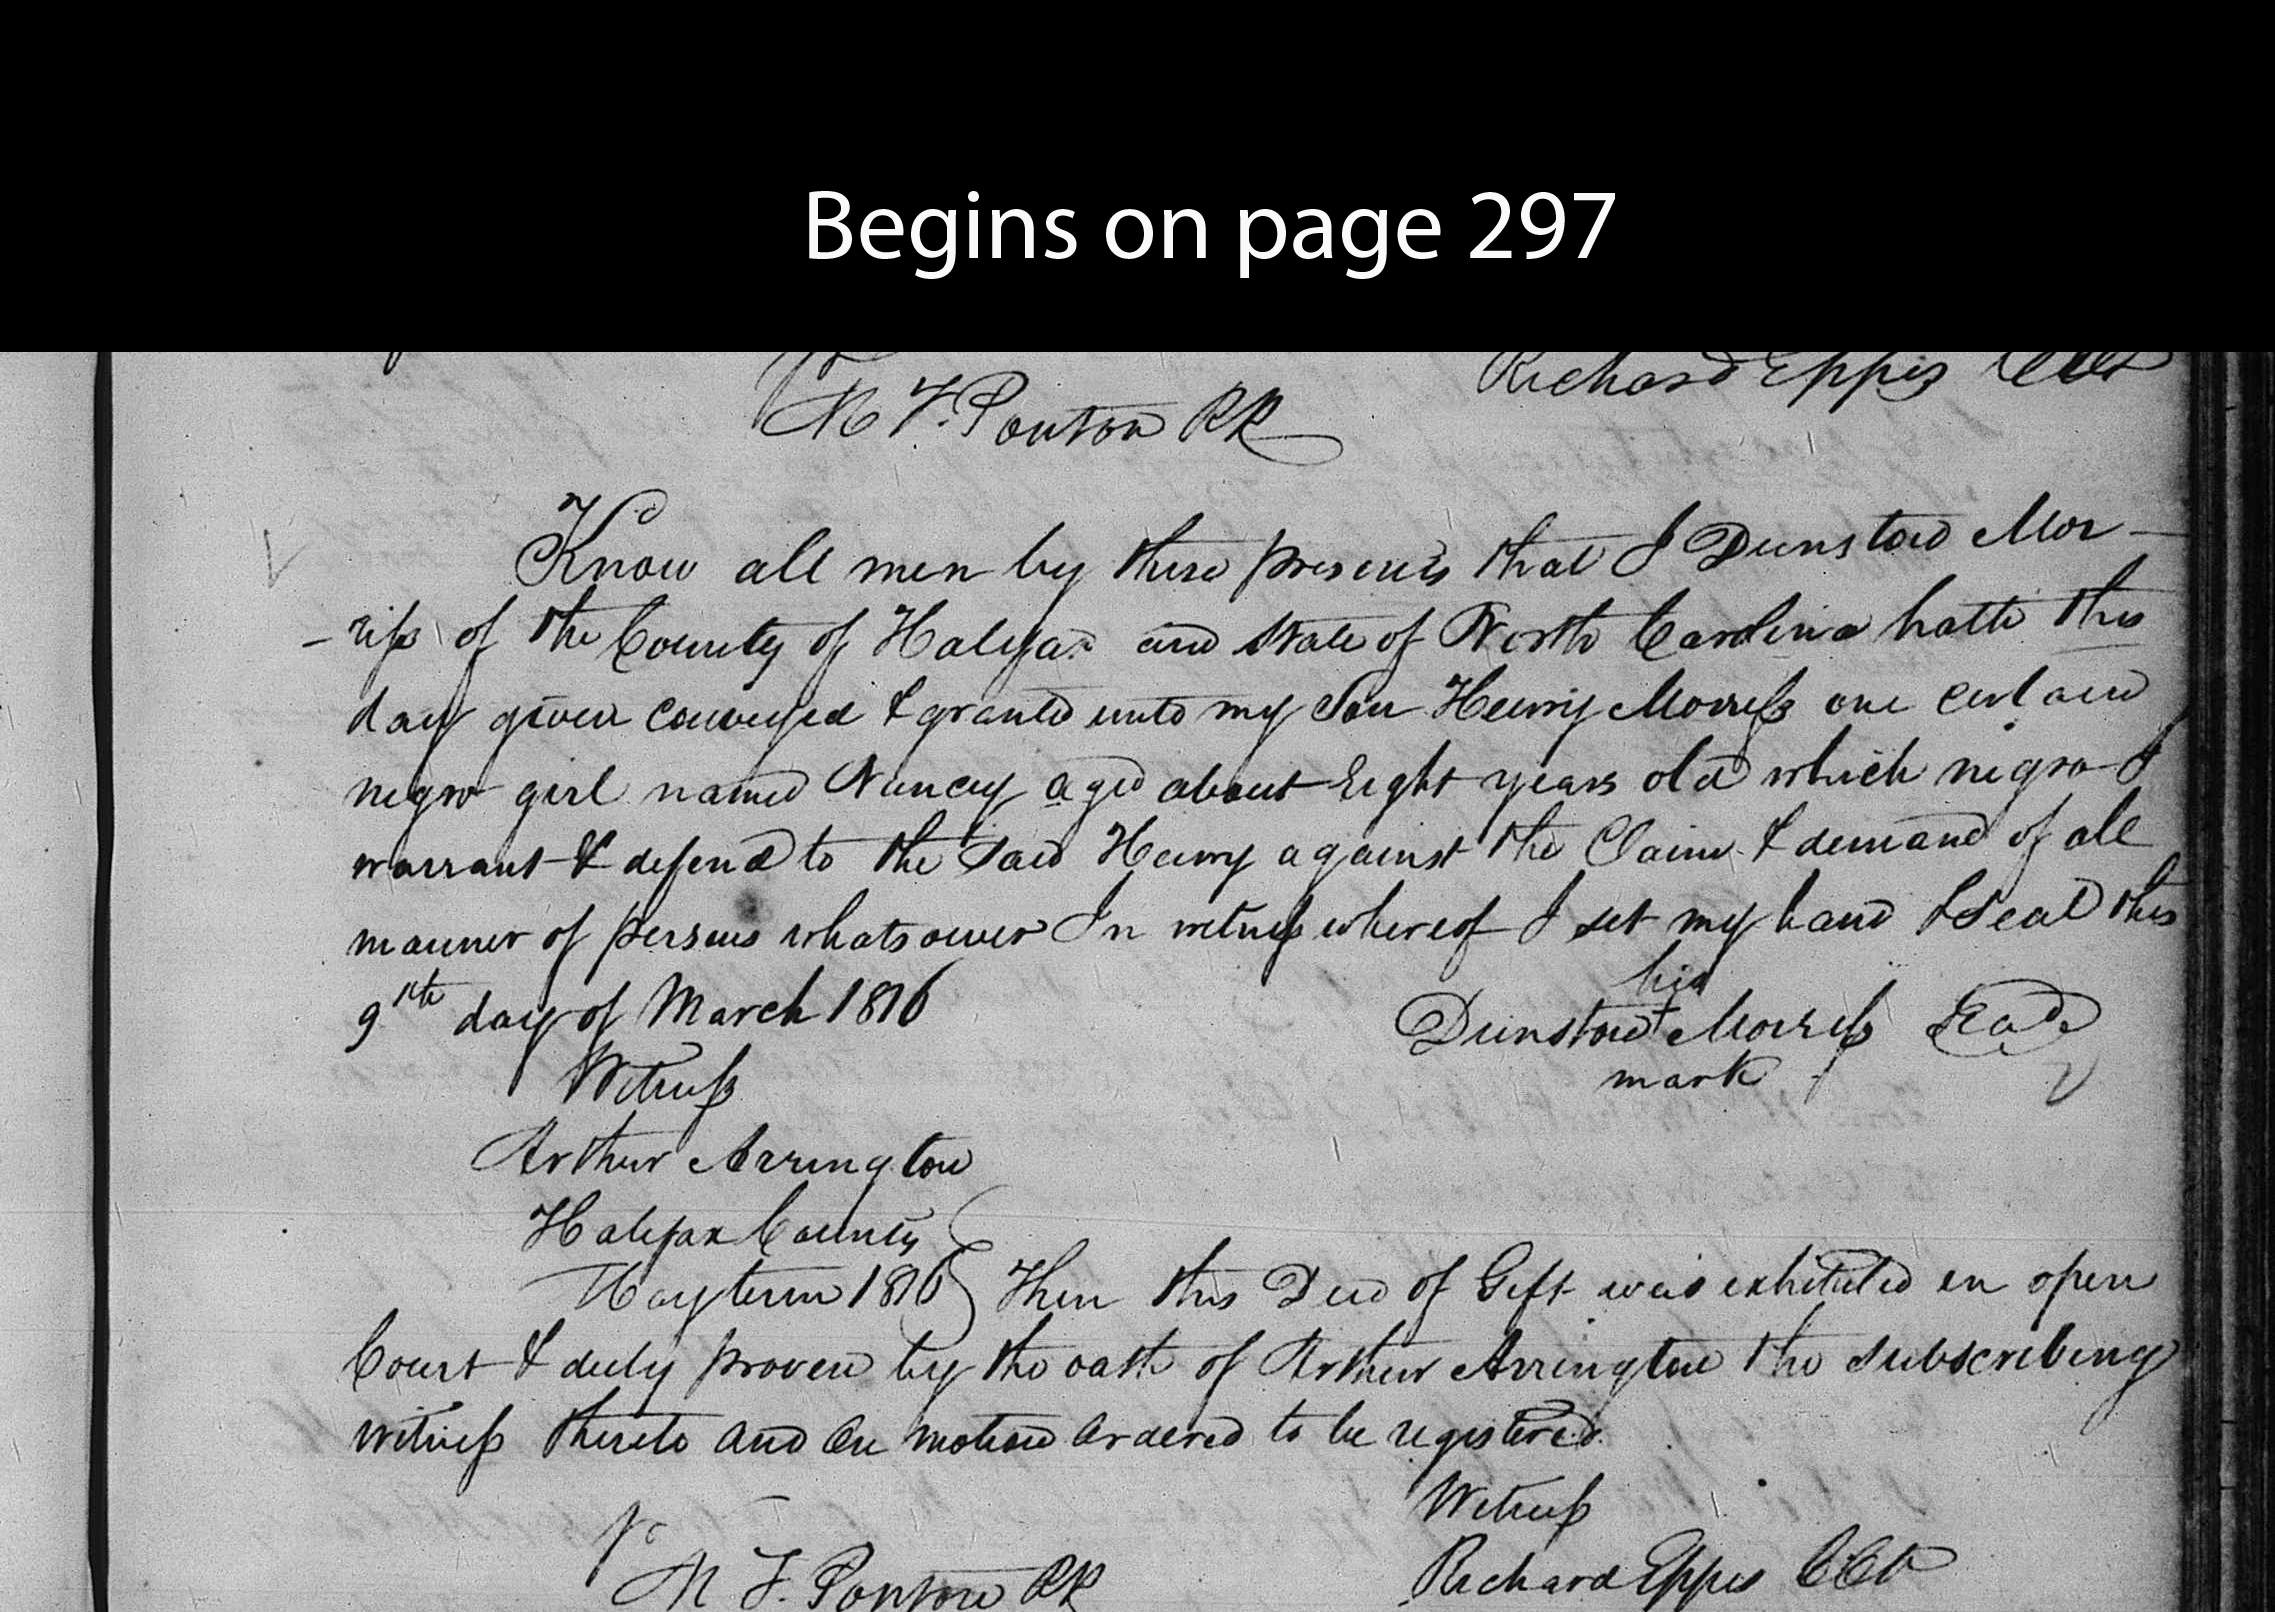 Begins on page 297
Richard Eppes CCt
M F. Ponton RR
Know all men by these presents that I Dunston Mor-
-riss of the County of Halifax and State of North Carolina hath this
day given conveyed & granted unto my Son Henry Morriss one certain
negro girl named Nancy aged about Eight years old which negro I
warrant & defend to the said Henry against the Claim & demand of all
manner of persons whatsoever In witness whereof I set my hand & Seal this
9th day of March 1816
his
Dunston + Morriss Seal
mark
Witness
Arthur Arrington
Halifax County
May term 1816 } Then this Deed of Gift was exhibited in open
Court & duly proven by the oath of Arthur Arrington the subscribing
witness thereto and on motion ordered to be registered.
Witness
M F. Ponton RR
Richard Eppes CCt